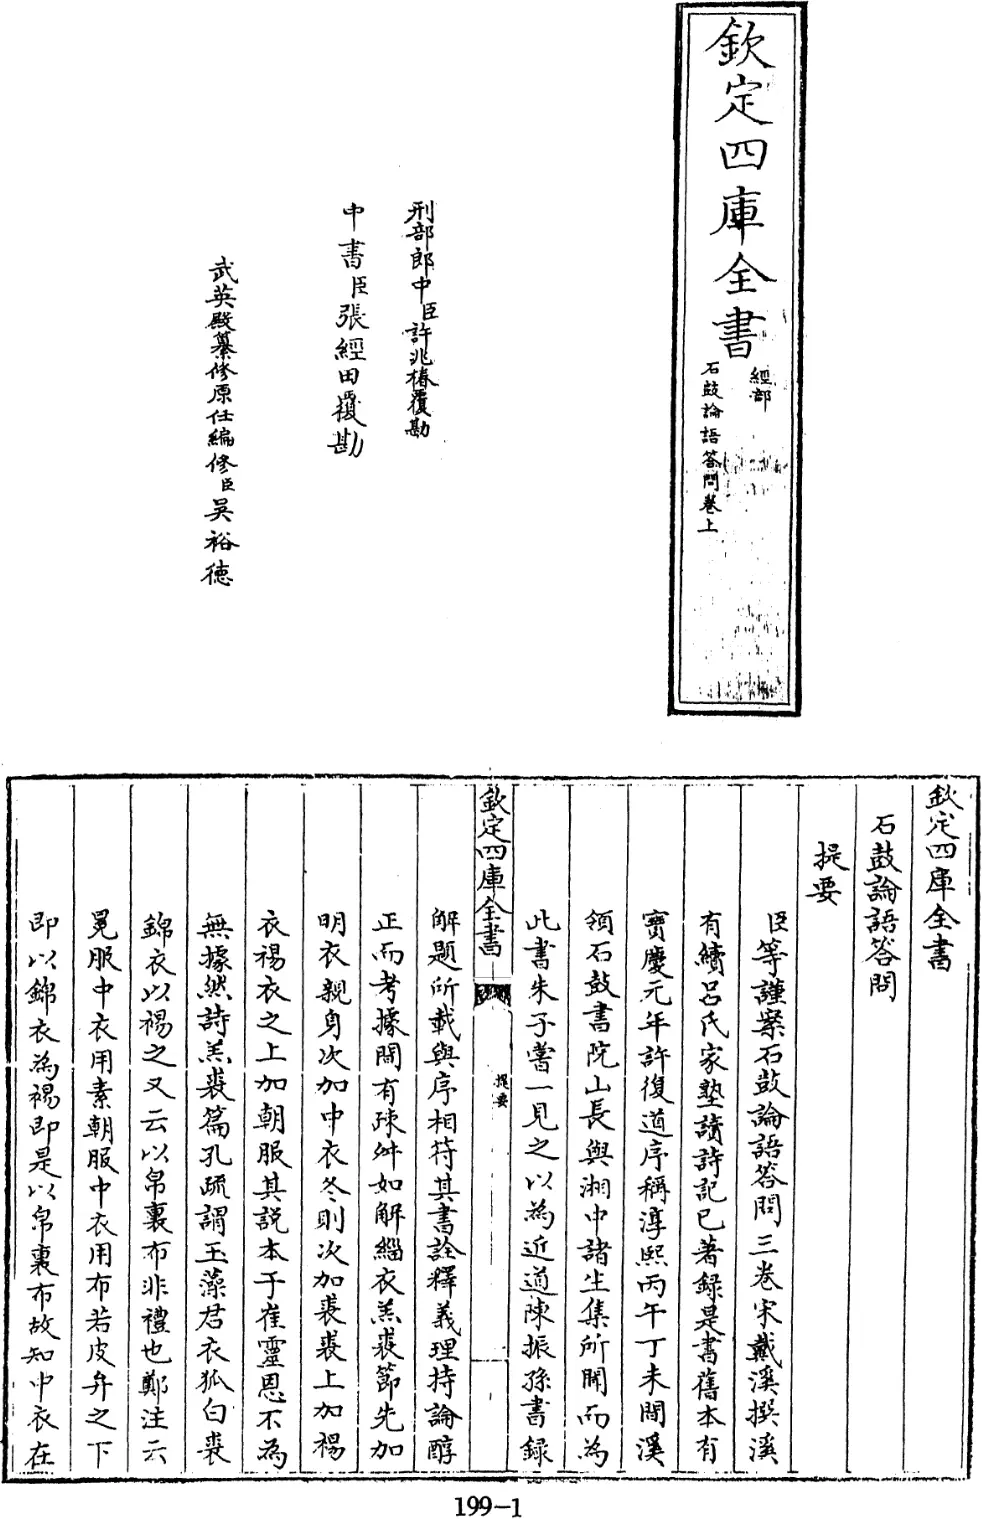 欽定四庫全書
經部
石鼓論語答問卷上
刑部郎中臣許兆椿覆勘
中書臣張經田覆勘
武英殿纂修原任編修臣吳裕德
欽定四庫全書
石鼓論語答問
提要
臣等謹案石鼓論語答問三卷宋戴溪撰溪
有續呂氏家塾讀詩記已著錄是書舊本有
寶慶元年許復道序稱淳熙丙午丁未間溪
領石鼓書院山長與湘中諸生集所聞而為
此書朱子嘗一見之以為近道陳振孫書錄
欽定四庫全書
提要
解題所載與序相符其書詮釋義理持論醇
正而考據間有疎舛如解緇衣羔裘節先加
明衣親身次加中衣冬則次加裘裘上加裼
衣裼衣之上加朝服其說本于崔靈恩不為
無據然詩羔裘篇孔疏謂玉藻君衣狐白裘
錦衣以裼之又云以帛裏布非禮也鄭注云
冕服中衣用素朝服中衣用布若皮弁之下
即以錦衣為裼即是以帛裏布故知中衣在
199-1